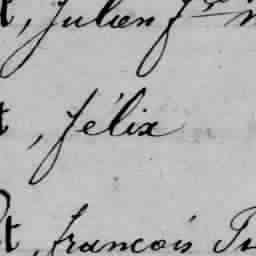 t, Julien f
t, félix
t, francois